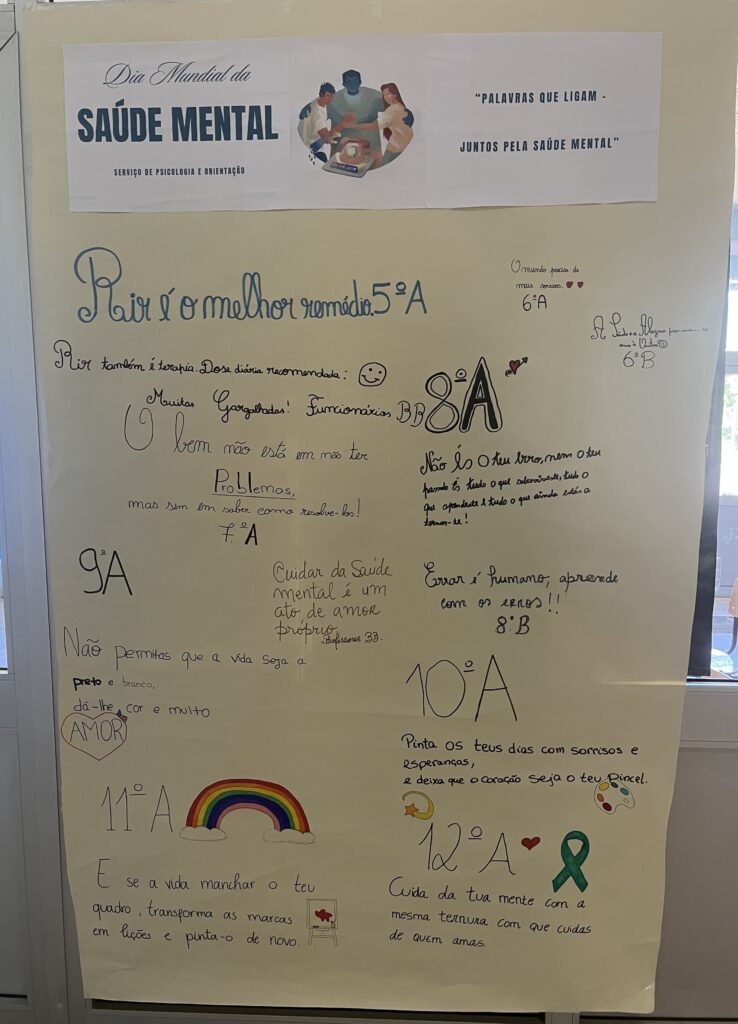 Dia Mundial da
SAÚDE MENTAL
SERVIÇO DE PSICOLOGIA E ORIENTAÇÃO
"PALAVRAS QUE LIGAM -
JUNTOS PELA SAÚDE MENTAL"
Rir é o melhor remédio. 5ºA
O mundo precisa de
mais sorrisos.
6ºA
A
6ºB
Rir também é terapia. Dose diária recomendada:
Muitas Gargalhadas! Funcionárias BB
8ºA
O bem não está em não ter
Problemas,
mas sim em saber como resolve-los!
7.ºA
Não És O teu Erro, nem O teu
passado És tudo o que sobreviveste, tudo o
que aprendeste E tudo o que ainda estás a
tornar-te!
9ºA
Cuidar da Saúde
mental é um
ato de amor
próprio.
Professores BB.
Errar é humano, aprende
com os erros!!
8ºB
Não permitas que a vida seja a
preto e branco,
dá-lhe cor e muito
AMOR
10ºA
Pinta os teus dias com sorrisos e
esperanças,
e deixa que o coração seja o teu Pincel.
11ºA
12ºA
E se a vida manchar o teu
quadro, transforma as marcas
em lições e pinta-o de novo.
Cuida da tua mente com a
mesma ternura com que cuidas
de quem amas.